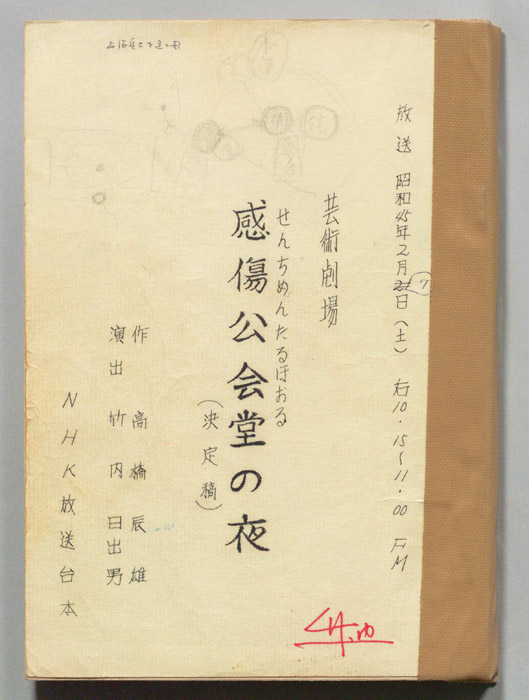 放送 昭和45年2月7日(土) 后10.15〜11.00 FM
芸術劇場
せんちめんたるほおる
感傷公会堂の夜
(決定稿)
作 高橋辰雄
演出 竹内日出男
NHK放送台本